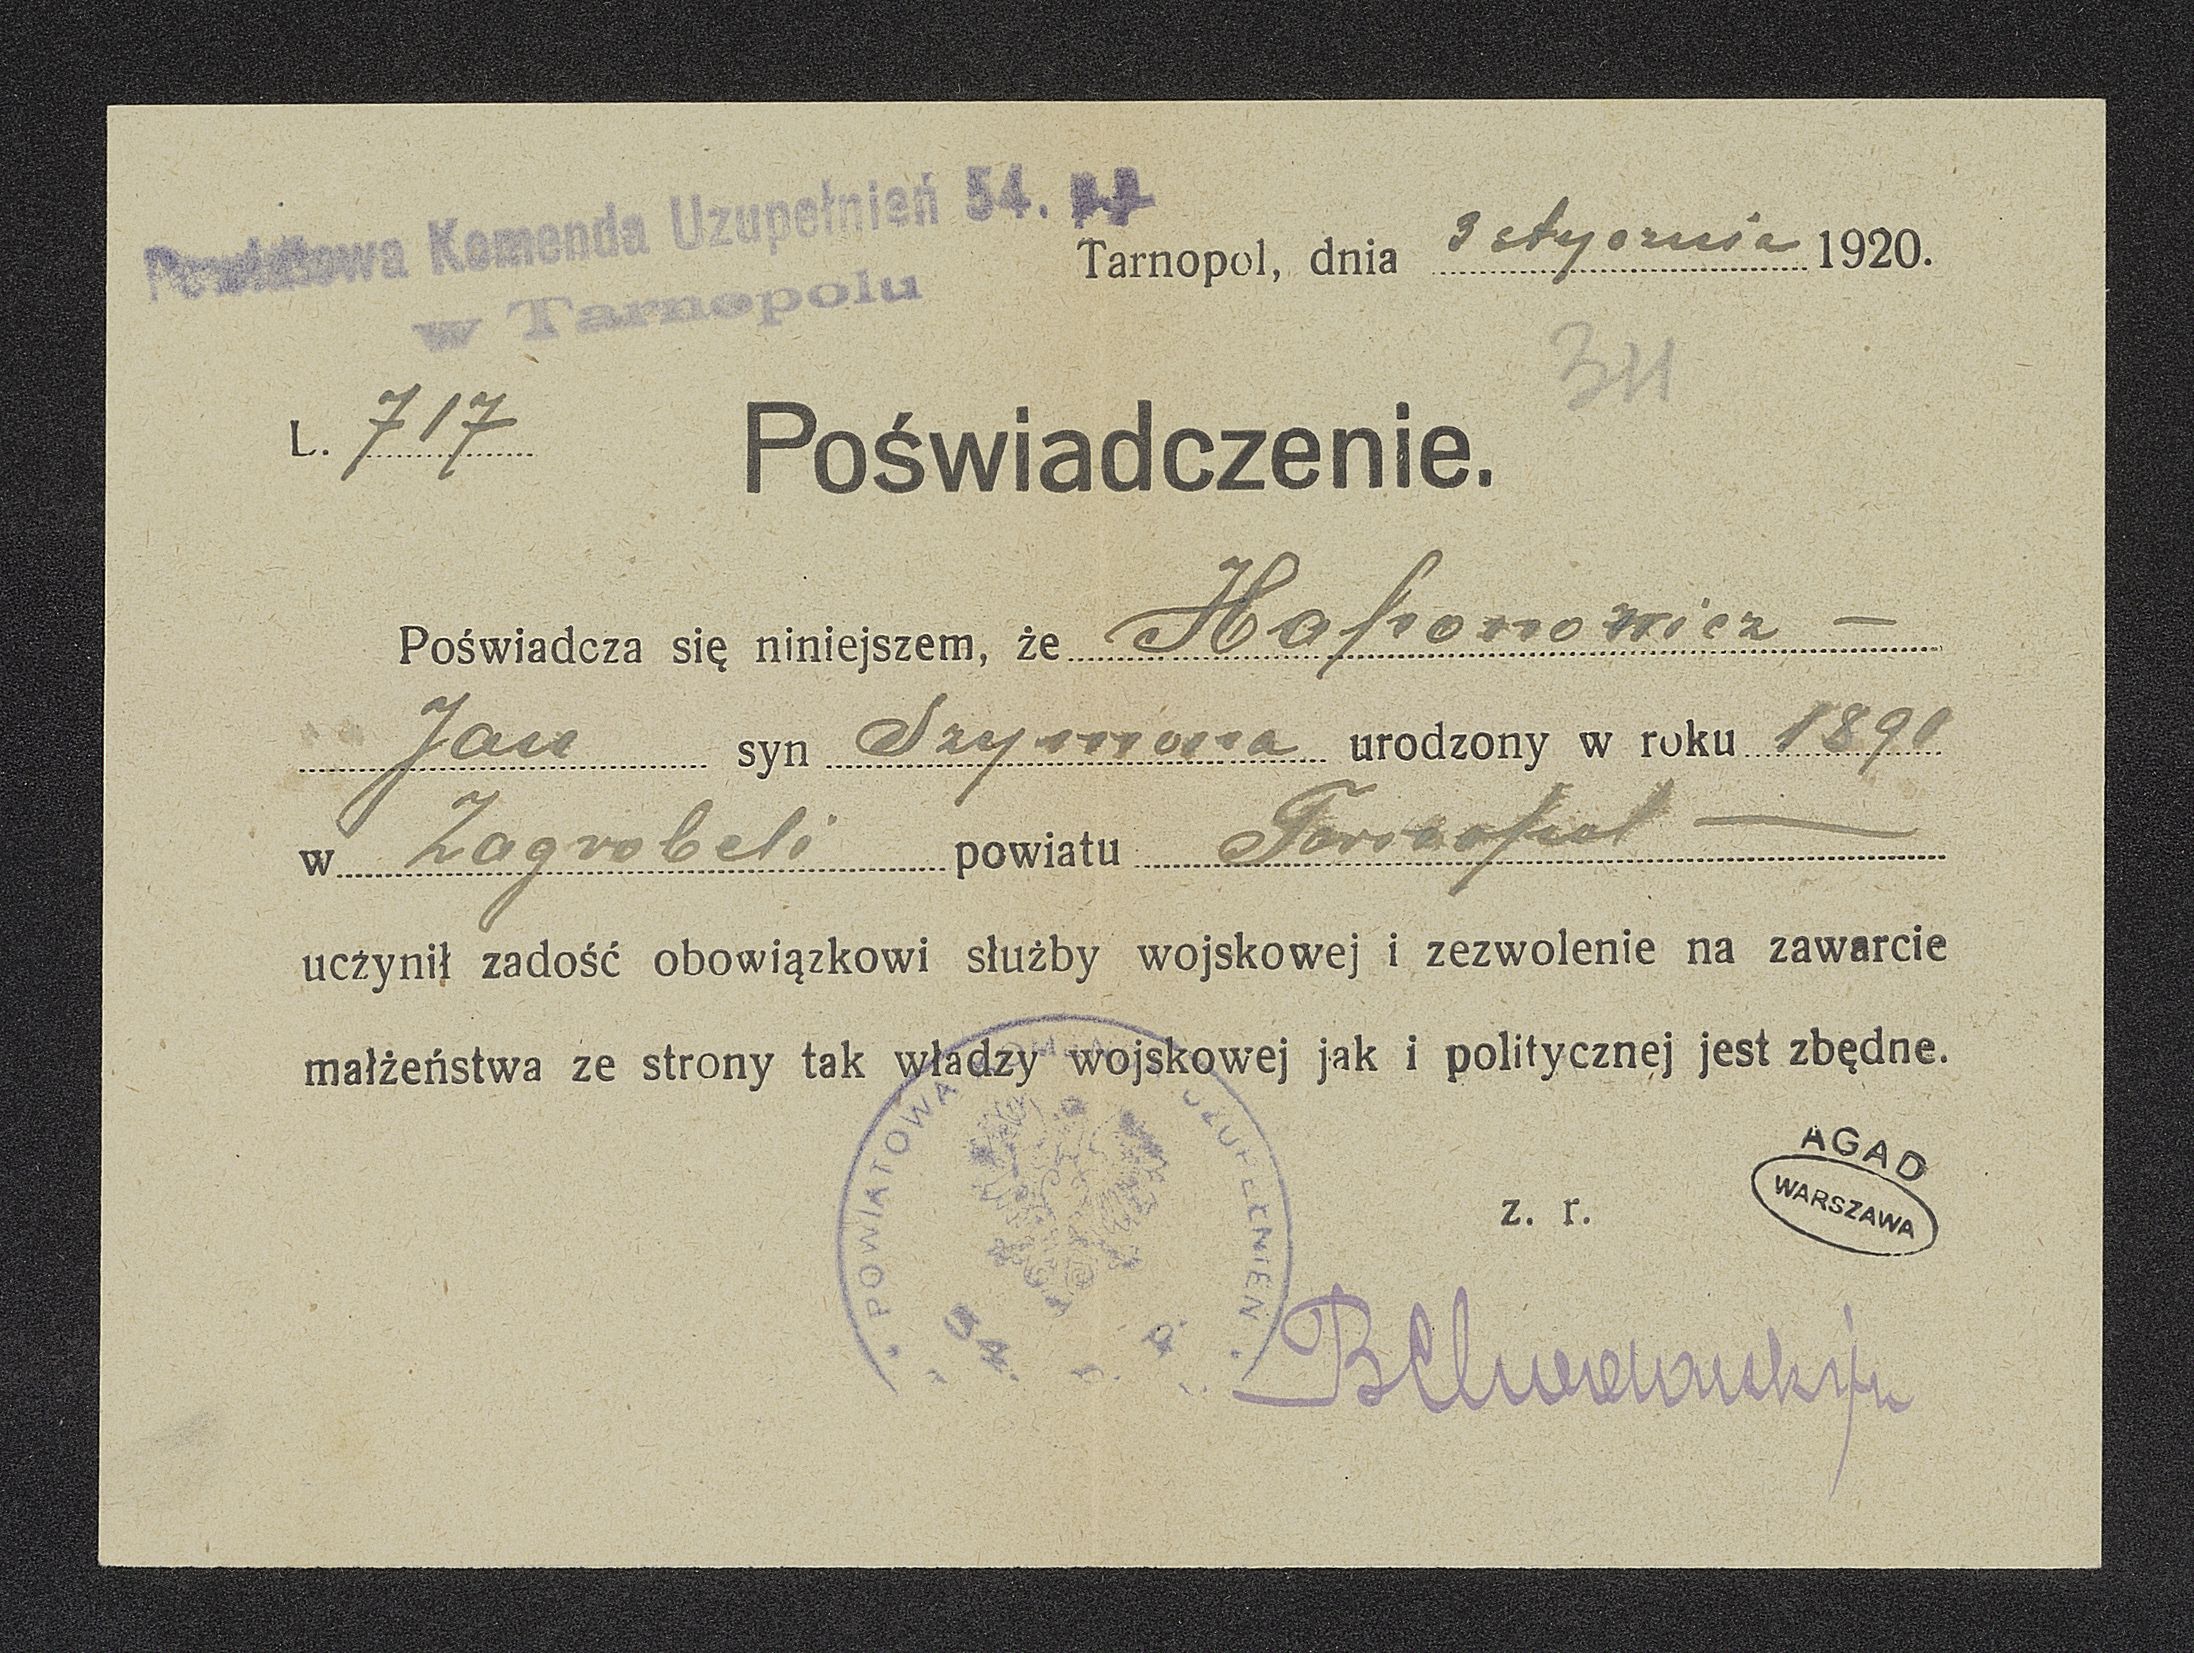 Powiatowa Komenda Uzupełnień 54. pp
w Tarnopolu
Tarnopol, dnia 3 stycznia 1920.
311
L. 717
Poświadczenie.
Poświadcza się niniejszem, że Haponowicz —
Jan syn Szymona urodzony w roku 1890
w Zagrobeli powiatu Tarnopol —
uczynił zadość obowiązkowi służby wojskowej i zezwolenie na zawarcie
małżeństwa ze strony tak władzy wojskowej jak i politycznej jest zbędne.
POWIATOWA KOMENDA UZUPEŁNIEŃ
54. p. p.
z. r.
AGAD
WARSZAWA